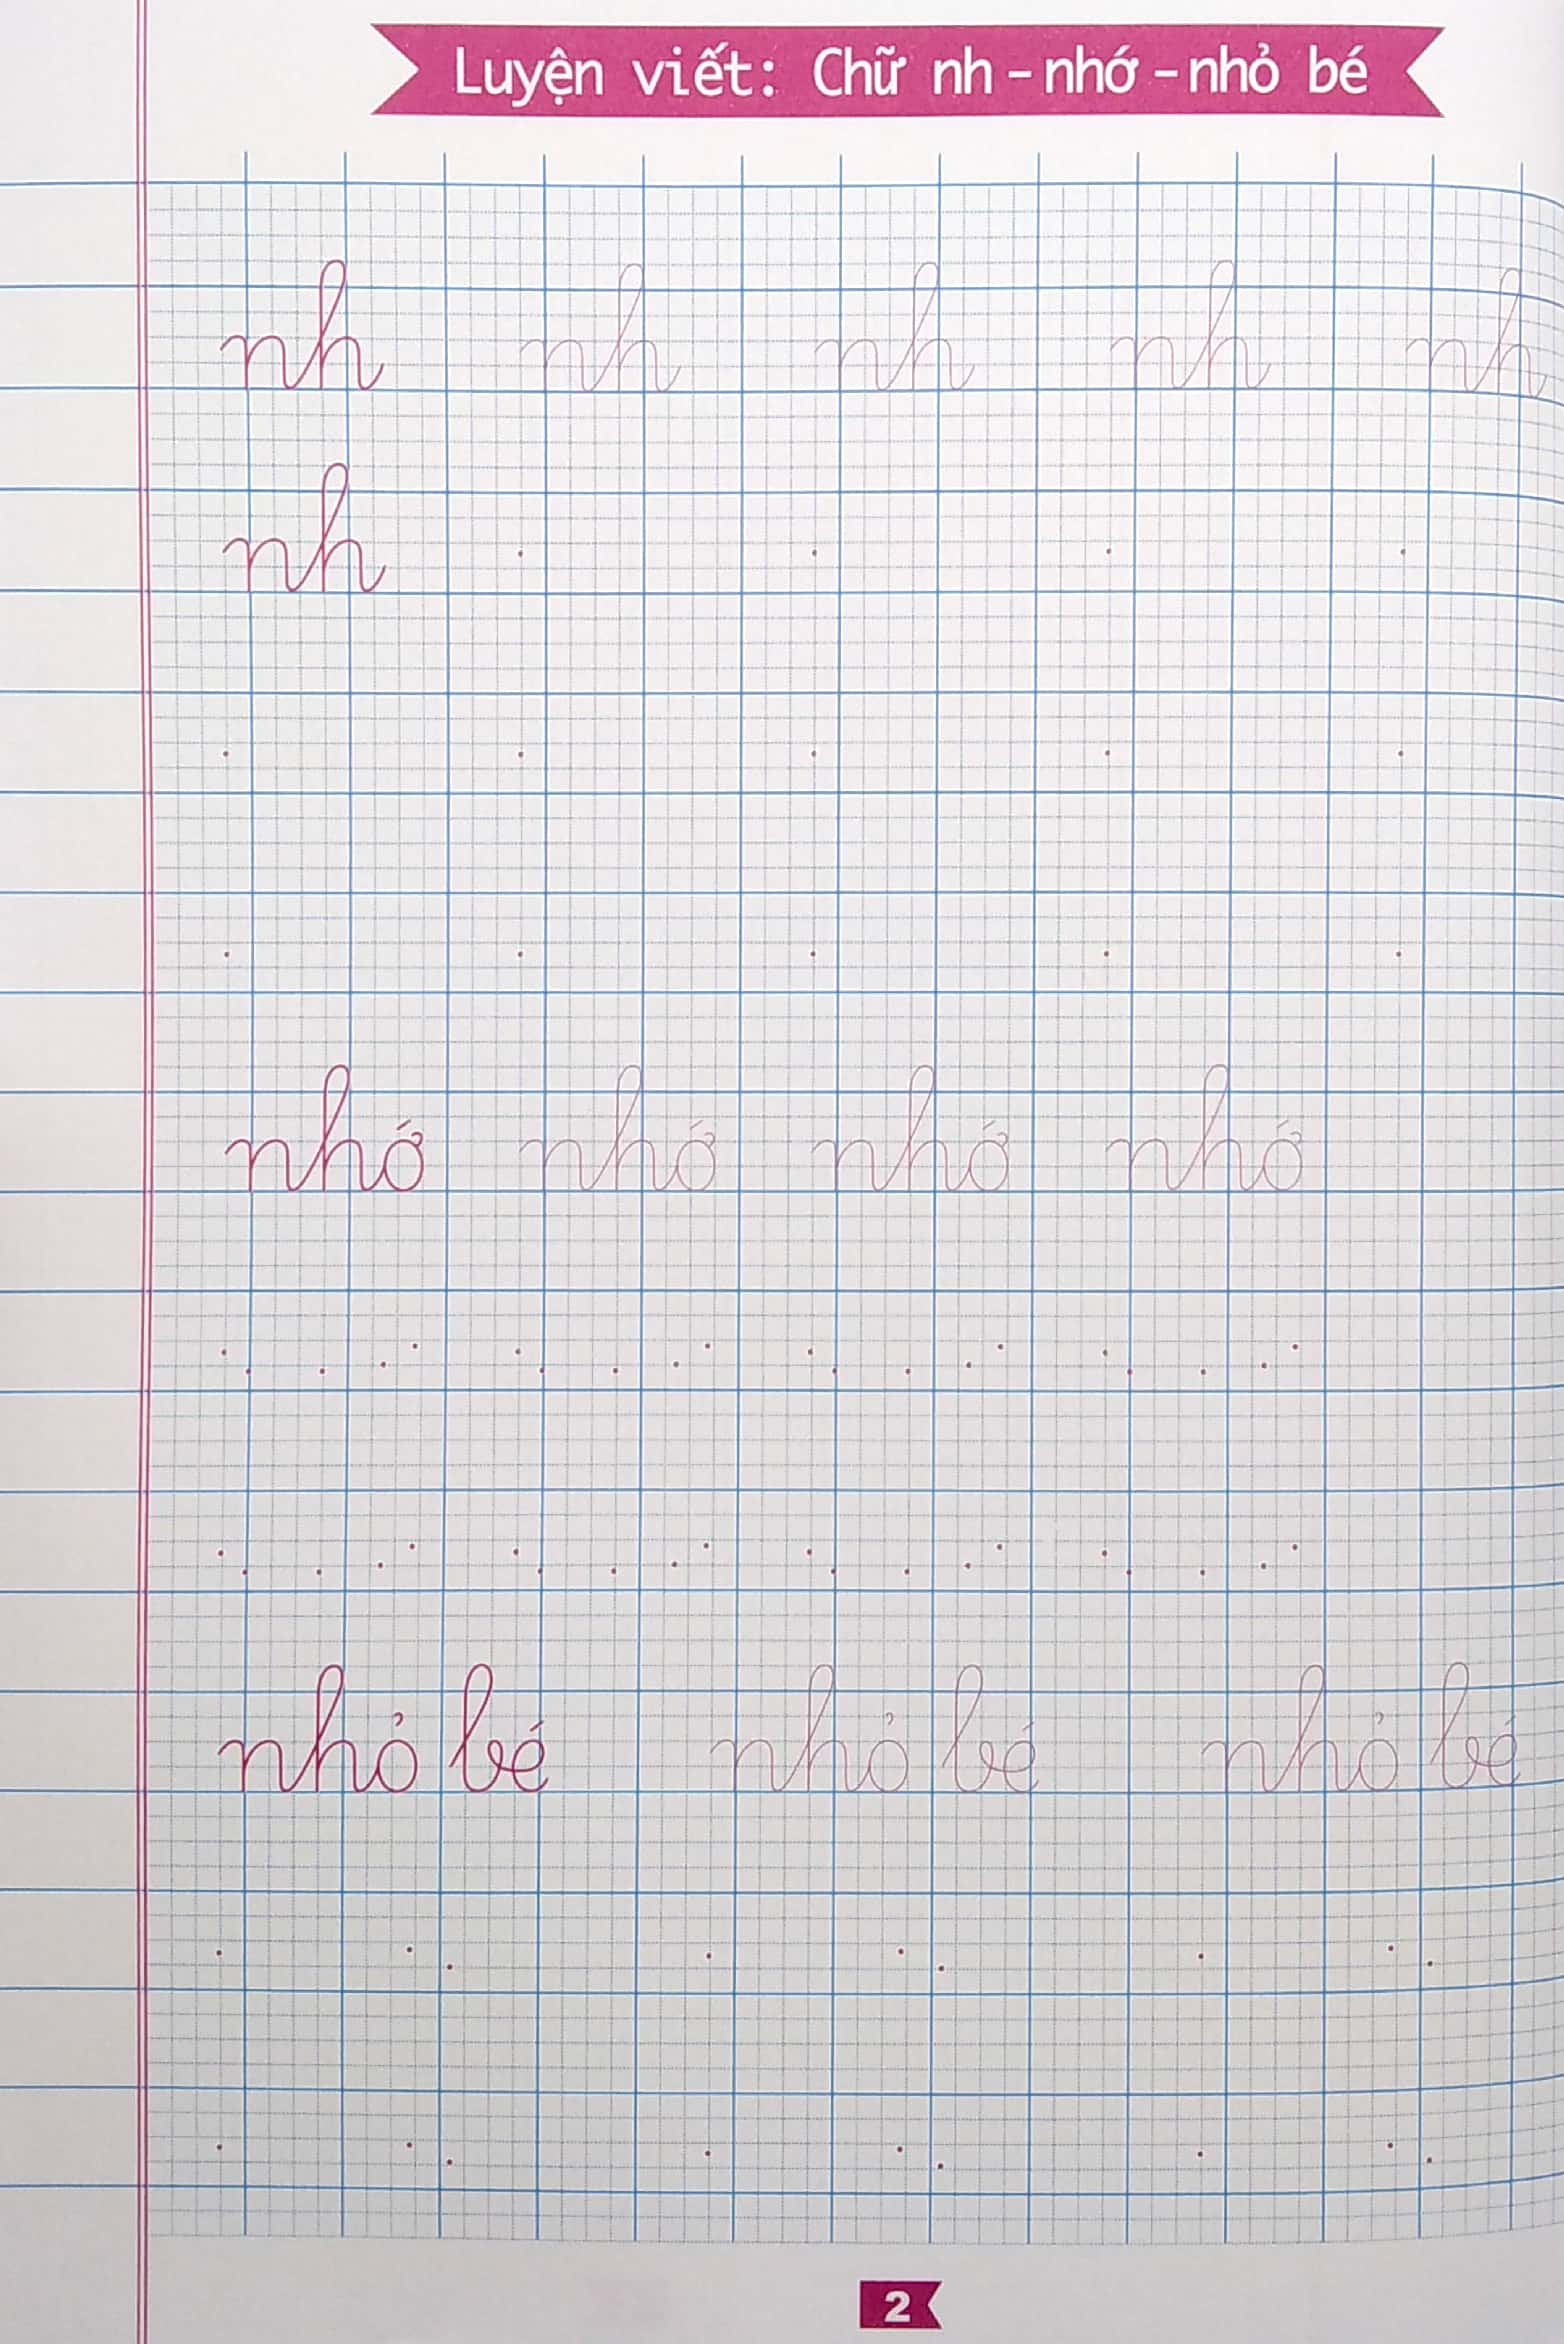 Luyện viết: Chữ nh - nhớ - nhỏ bé
nh nh nh nh nh
nh
nhớ nhớ nhớ nhớ
nhỏ bé nhỏ bé nhỏ bé
2